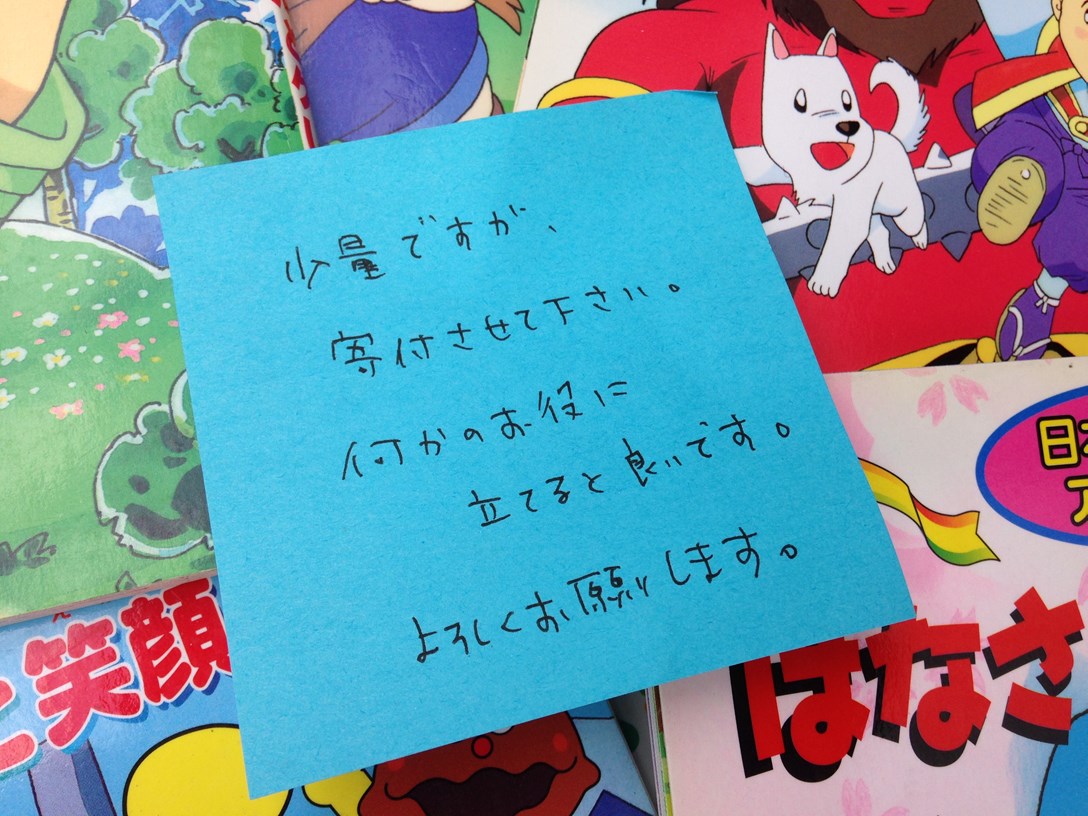 少量ですが、
寄付させて下さい。
何かのお役に
立てると良いです。
よろしくお願いします。
日本
え
と笑顔
はなさ